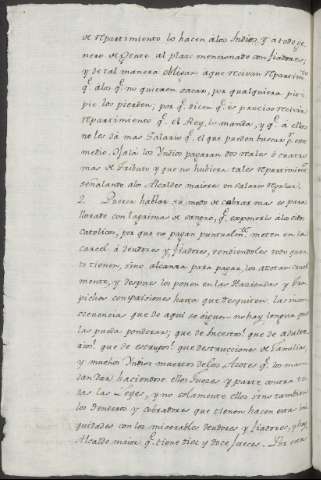 de repartimiento lo hacen alos Indios, q̃ a todo ge
nero de Gente al plaso mencionado con fiadores,
y de tal manera obligan aque reciuan repartimto.
q̃ alos q̃ no quieren sacan, por qualquiera
pie los pierden, por q̃ dicen q̃ es preciso reciuir
repartimiento q̃ el Rey, lo manda, y q̃ a ellos
no les dá mas Salario q̃ el que pueden buscar pr. este
medio. Ojalá los Yndios pagaran dos reales ó cuatro
mas de Tributo y que no hubiera tales repartimientos
señalando alos Alcaldes maiores un salario regular.
2. Pues en hablar el modo de cobrar mas es para
llorarlo con lagrimas de sangre, q̃ exponerlo á los oidos
catolicos, por que no pagan puntualmte. meten en la
carcel á deudores y fiadores, vendiendoles todo quan
to tienen, sino alcanza para pagar, los azotan cruel
mente, y despues los ponen en las Haciendas y
hasta que desquiten, las
consecuencias que de aqui se siguen no hay lengua que
las pueda ponderar, que de Incestos! que de adulte
rios! que de estrupos! que destrucciones de familias,
y muchos Yndios muertos de los Azotes q̃ los man
dan dar, haciendose ellos Juezes y parte contra to
das las Leyes, y no solamente ellos sino tambien
los tenientes y cobradores que tienen hacen estas ini
quidades con los miserables deudores y fiadores, y hay
Alcalde maior q̃ tiene diez y doce Jueces. Por estas